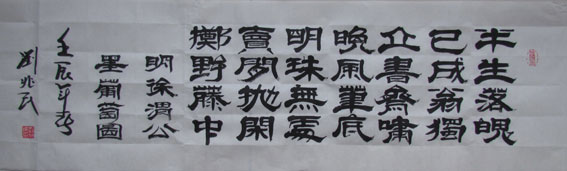 半生落魄
已成翁獨
立書齋嘯
晚風筆底
明珠無處
賣閒拋閑
擲野藤中
明徐渭公
墨葡萄圖
壬辰年
劉兆